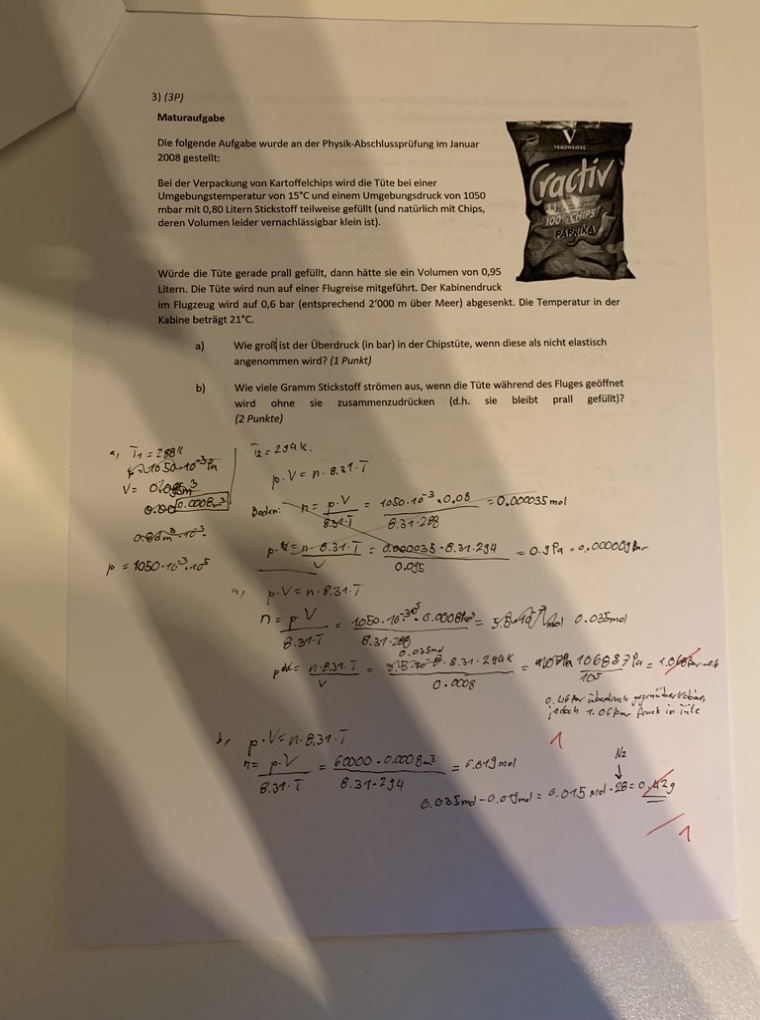 3) (3P)
Maturaaufgabe
Die folgende Aufgabe wurde an der Physik-Abschlussprüfung im Januar
2008 gestellt:
Bei der Verpackung von Kartoffelchips wird die Tüte bei einer
Umgebungstemperatur von 15°C und einem Umgebungsdruck von 1050
mbar mit 0,80 Litern Stickstoff teilweise gefüllt (und natürlich mit Chips,
deren Volumen leider vernachlässigbar klein ist).
V
Cractiv
100% CHIPS
PAPRIKA
Würde die Tüte gerade prall gefüllt, dann hätte sie ein Volumen von 0,95
Litern. Die Tüte wird nun auf einer Flugreise mitgeführt. Der Kabinendruck
im Flugzeug wird auf 0,6 bar (entsprechend 2'000 m über Meer) abgesenkt. Die Temperatur in der
Kabine beträgt 21°C.
a) Wie groß ist der Überdruck (in bar) in der Chipstüte, wenn diese als nicht elastisch
angenommen wird? (1 Punkt)
b) Wie viele Gramm Stickstoff strömen aus, wenn die Tüte während des Fluges geöffnet
wird ohne sie zusammenzudrücken (d.h. sie bleibt prall gefüllt)?
(2 Punkte)
a, T1 = 288K
V =
0.0008m³
p = 1050·10⁻³·10⁵
T2 = 294K.
p·V = n·8.31·T
Boden: n = p·V / 8.31·T = 1050·10⁻³·0.08 / 8.31·288 = 0.000035 mol
n·8.31·T / V = 0.000035·8.31·294 / 0.095 = 0.9Pa = 0.000009bar
a, p·V = n·8.31·T
n = p·V / 8.31·T = 0.0008m³ / 8.31·288 = 0.035mol
n·8.31·T / V = 0.035mol · 8.31·294K / 0.0008 = 106887Pa / 10⁵
0.46bar überdruck gegenüber
jedoch 1.06bar Druck in Tüte
1
b, p·V = n·8.31·T
n = p·V / 8.31·T = 60000·0.0008m³ / 8.31·294 = 0.019mol
N2
0.035mol - 0.019mol = 0.015mol·28 = 0.42g
1